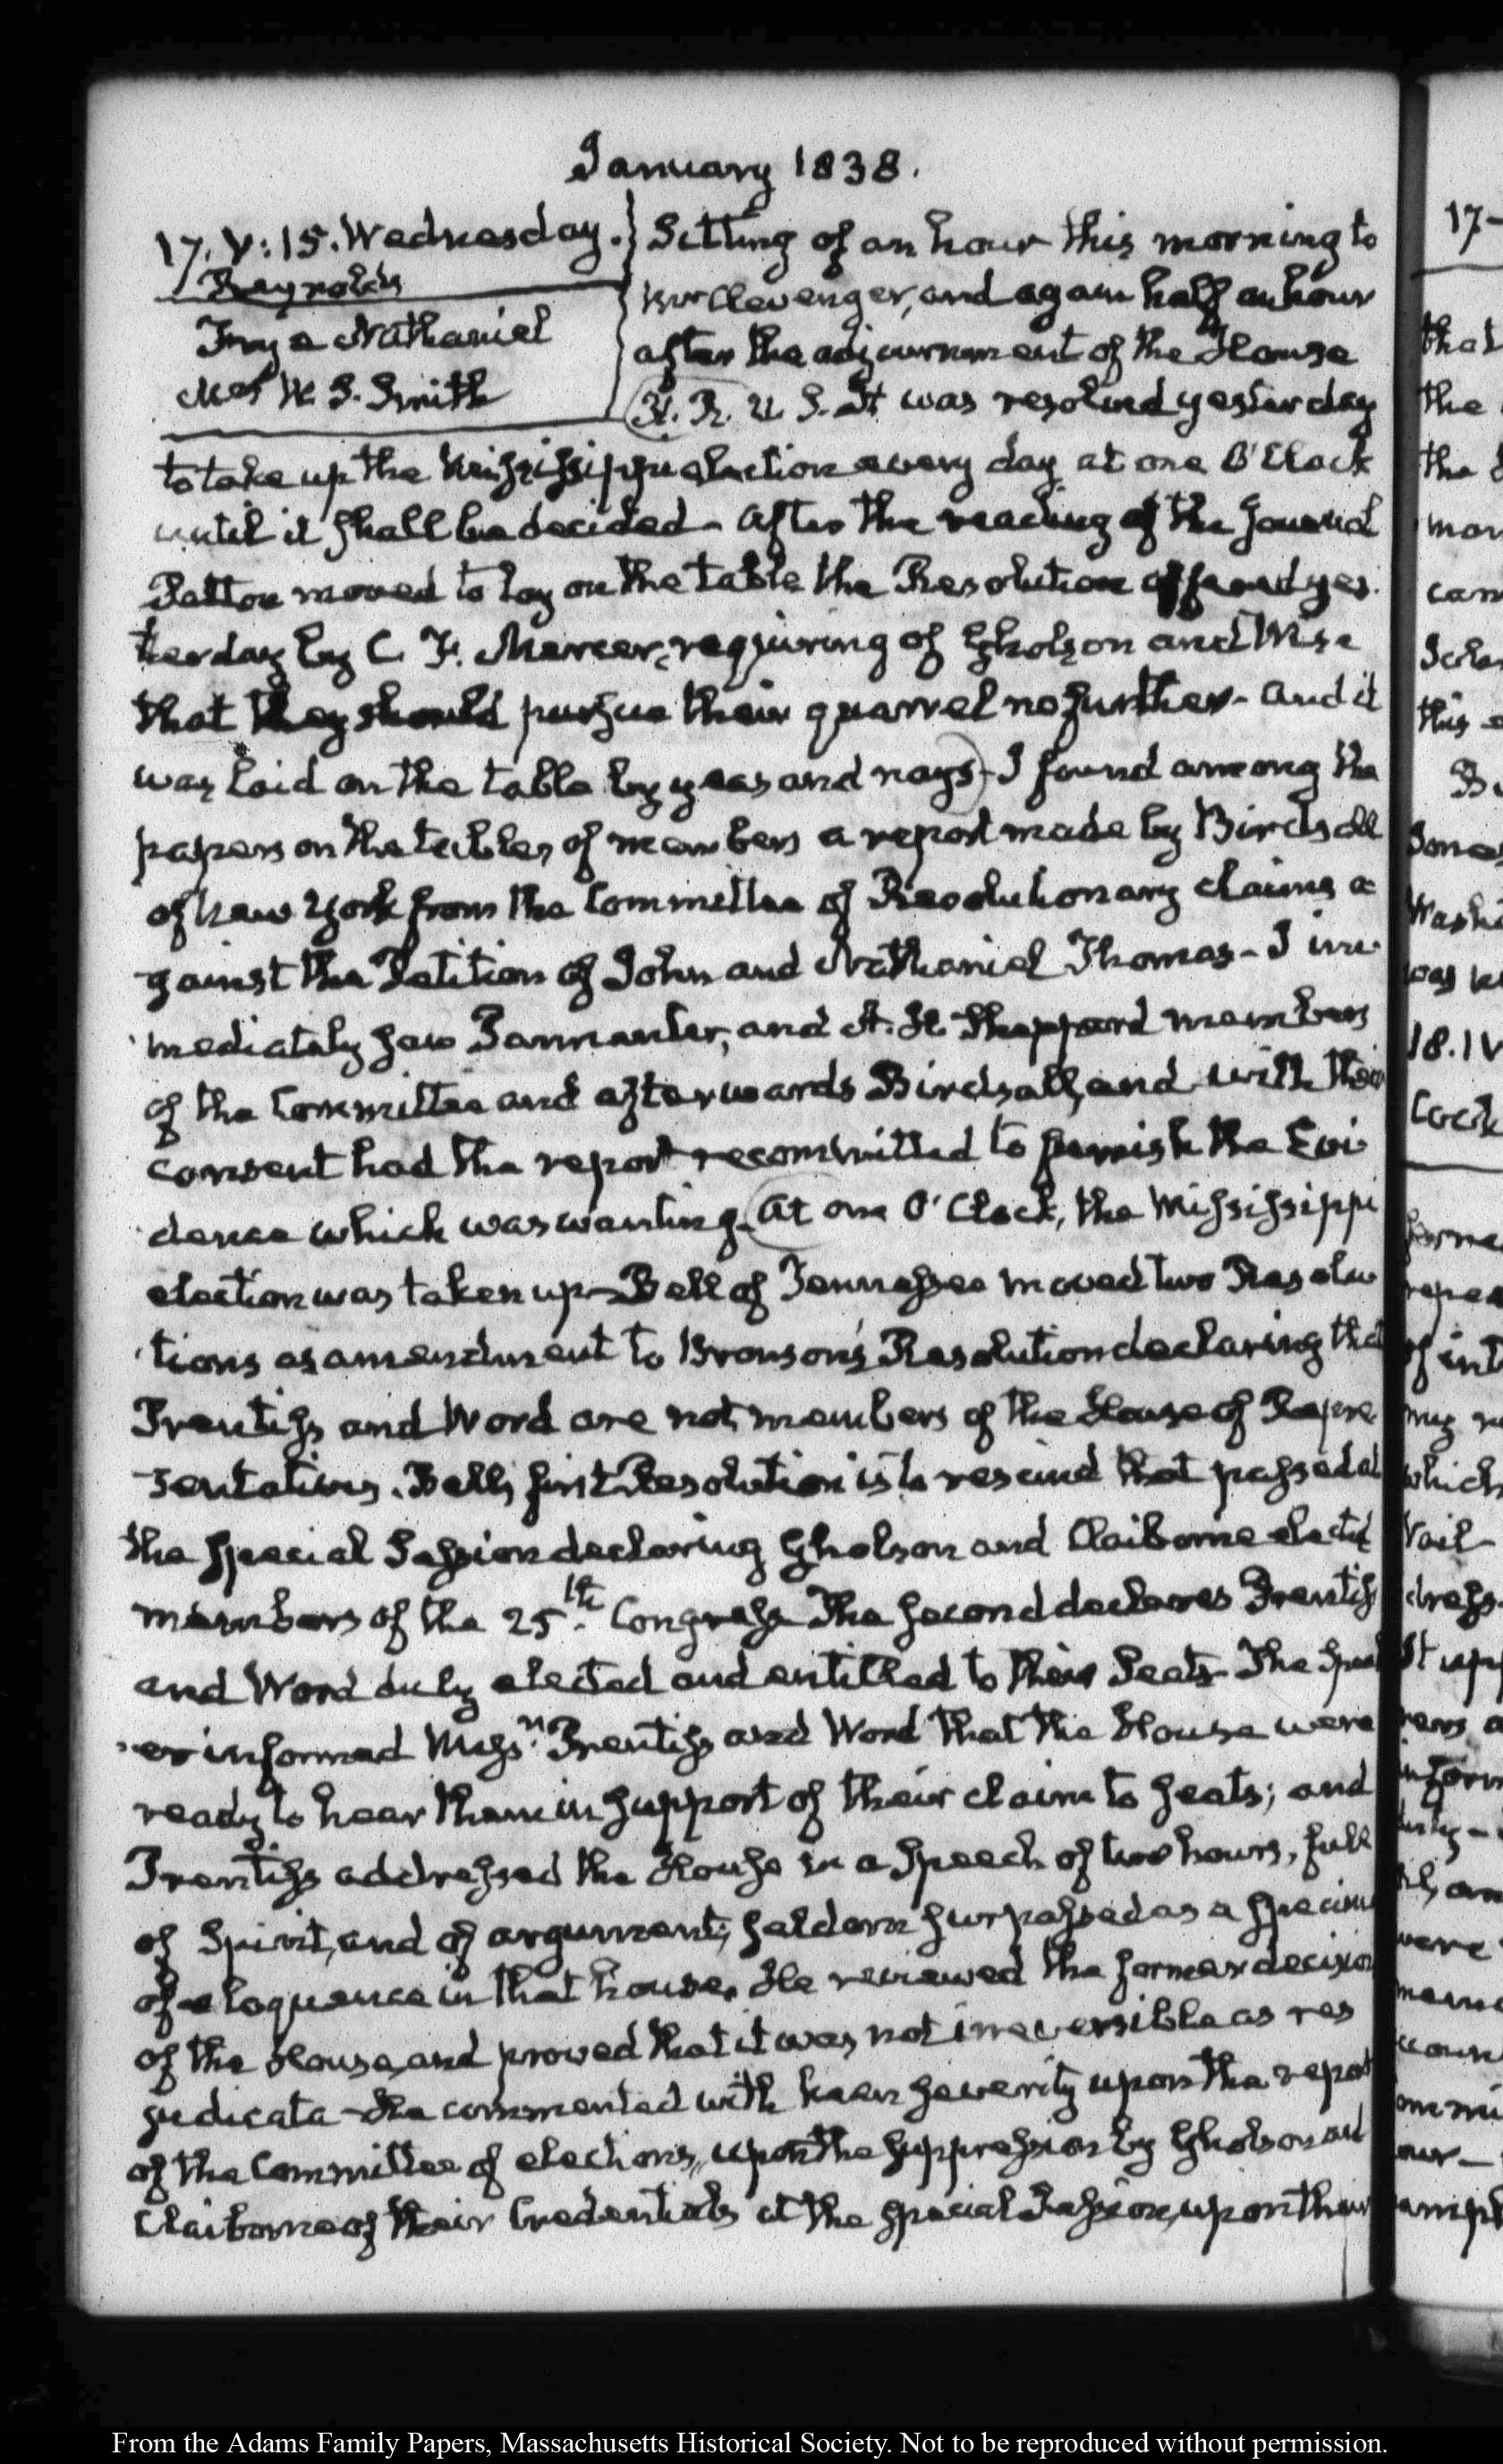 January 1838.
17. V:15. Wednesday.
Reynolds
Frye Nathaniel
Mrs W. S. Smith
Sitting of an hour this morning to
Mr Clevenger, and again half an hour
after the adjournment of the House
H. R. U. S. It was resolved yesterday
to take up the Mississippi election every day at one O'Clock
until it shall be decided - After the reading of the Journal
Patton moved to lay on the table the Resolution offered yes-
terday by C. F. Mercer, requiring of Gholson and Wise
that they should pursue their quarrel no further - And it
was laid on the table by yeas and nays - I found among the
papers on the tables of members a report made by Birdsall
of New York from the Committee of Revolutionary claims a
gainst the Petition of John and Nathaniel Thomas - I im
mediately saw Parmenter, and A. H. Shepperd members
of the Committee and afterwards Birdsall, and with their
consent had the report recommitted to furnish the Evi
dence which was wanting. At one O'Clock, the Mississippi
election was taken up - Bell of Tennessee moved two Resolu
tions as amendment to Bronson's Resolution declaring that
Prentiss and Word are not members of the House of Repre
sentatives. Bell's first Resolution is to rescind that passed at
the Special Session declaring Gholson and Claiborne elected
members of the 25th. Congress The second declares Prentiss
and Word duly elected and entitled to their Seats - The Speak
er informed Messrs. Prentiss and Word that the House were
ready to hear them in support of their claim to seats; and
Prentiss addressed the House in a Speech of two hours, full
of Spirit, and of argument, seldom surpassed as a specimen
of eloquence in that house. He reviewed the former decision
of the House, and proved that it was not irreversible as res
judicata - He commented with keen severity upon the report
of the Committee of elections, upon the suppression by Gholson and
Claiborne of their Credentials at the special Session, upon their
From the Adams Family Papers, Massachusetts Historical Society. Not to be reproduced without permission.